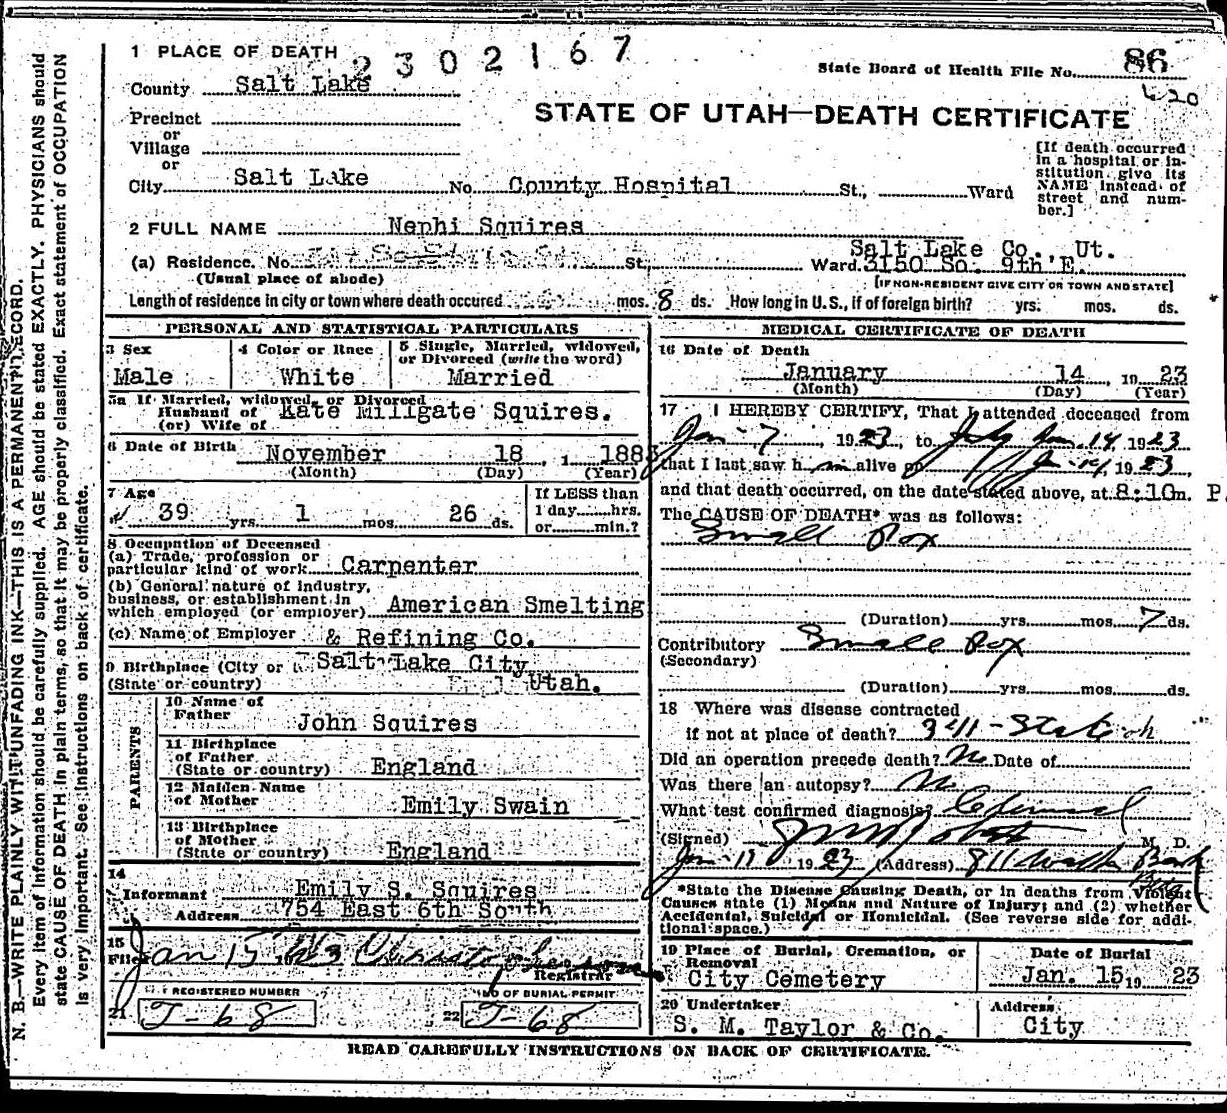 1 PLACE OF DEATH
2302167
State Board of Health File No. 86
620
County Salt Lake
STATE OF UTAH—DEATH CERTIFICATE
Precinct
or
Village
or
City Salt Lake No. County Hospital St., Ward
[If death occurred
in a hospital or in-
stitution give its
NAME instead of
street and num-
ber.]
2 FULL NAME Nephi Squires
Salt Lake Co., Ut.
(a) Residence. No. St. Ward. 3150 So. 9th E.
(Usual place of abode) [IF NON-RESIDENT GIVE CITY OR TOWN AND STATE]
Length of residence in city or town where death occured mos. 8 ds. How long in U.S., if of foreign birth? yrs. mos. ds.
PERSONAL AND STATISTICAL PARTICULARS
3 Sex
Male
4 Color or Race
White
5 Single, Married, widowed,
or Divorced (write the word)
Married
5a If Married, widowed, or Divorced
Husband of Kate Millgate Squires.
(or) Wife of
6 Date of Birth November 18, 1883
(Month) (Day) (Year)
7 Age
39 yrs. 1 mos. 26 ds.
If LESS than
1 day hrs.
or min.?
8 Occupation of Deceased
(a) Trade, profession or
particular kind of work Carpenter
(b) General nature of industry,
business, or establishment in
which employed (or employer) American Smelting
(c) Name of Employer & Refining Co.
9 Birthplace (City or Salt Lake City
(State or country) Utah.
PARENTS
10 Name of
Father John Squires
11 Birthplace
of Father
(State or country) England
12 Maiden Name
of Mother Emily Swain
13 Birthplace
of Mother
(State or country) England
14
Informant Emily S. Squires
Address 754 East 6th South
15
Filed Jan 15 1923
Registrar
REGISTERED NUMBER
21 J-68
NO OF BURIAL PERMIT
22 J-68
MEDICAL CERTIFICATE OF DEATH
16 Date of Death
January 14, 1923
(Month) (Day) (Year)
17 I HEREBY CERTIFY, That I attended deceased from
Jan-7, 1923, to Jan. 14 1923
that I last saw him alive on Jan-14 1923
and that death occurred, on the date stated above, at 8:10 m. P
The CAUSE OF DEATH* was as follows:
Small Pox
(Duration) yrs. mos. 7 ds.
Contributory Small Pox
(Secondary)
(Duration) yrs. mos. ds.
18 Where was disease contracted
if not at place of death? 3411-State
Did an operation precede death? No Date of
Was there an autopsy? No
What test confirmed diagnosis? Clinical
(Signed) M. D.
1923 (Address) 811 Walker Bank
*State the Disease Causing Death, or in deaths from Violent
Causes state (1) Means and Nature of Injury; and (2) whether
Accidental, Suicidal or Homicidal. (See reverse side for addi-
tional space.)
19 Place of Burial, Cremation, or
Removal
City Cemetery
Date of Burial
Jan. 15 1923
20 Undertaker
S. M. Taylor & Co.
Address
City
READ CAREFULLY INSTRUCTIONS ON BACK OF CERTIFICATE.
N. B.—WRITE PLAINLY WITH UNFADING INK—THIS IS A PERMANENT RECORD.
Every item of information should be carefully supplied. AGE should be stated EXACTLY. PHYSICIANS should
state CAUSE OF DEATH in plain terms, so that it may be properly classified. Exact statement of OCCUPATION
is very important. See instructions on back of certificate.